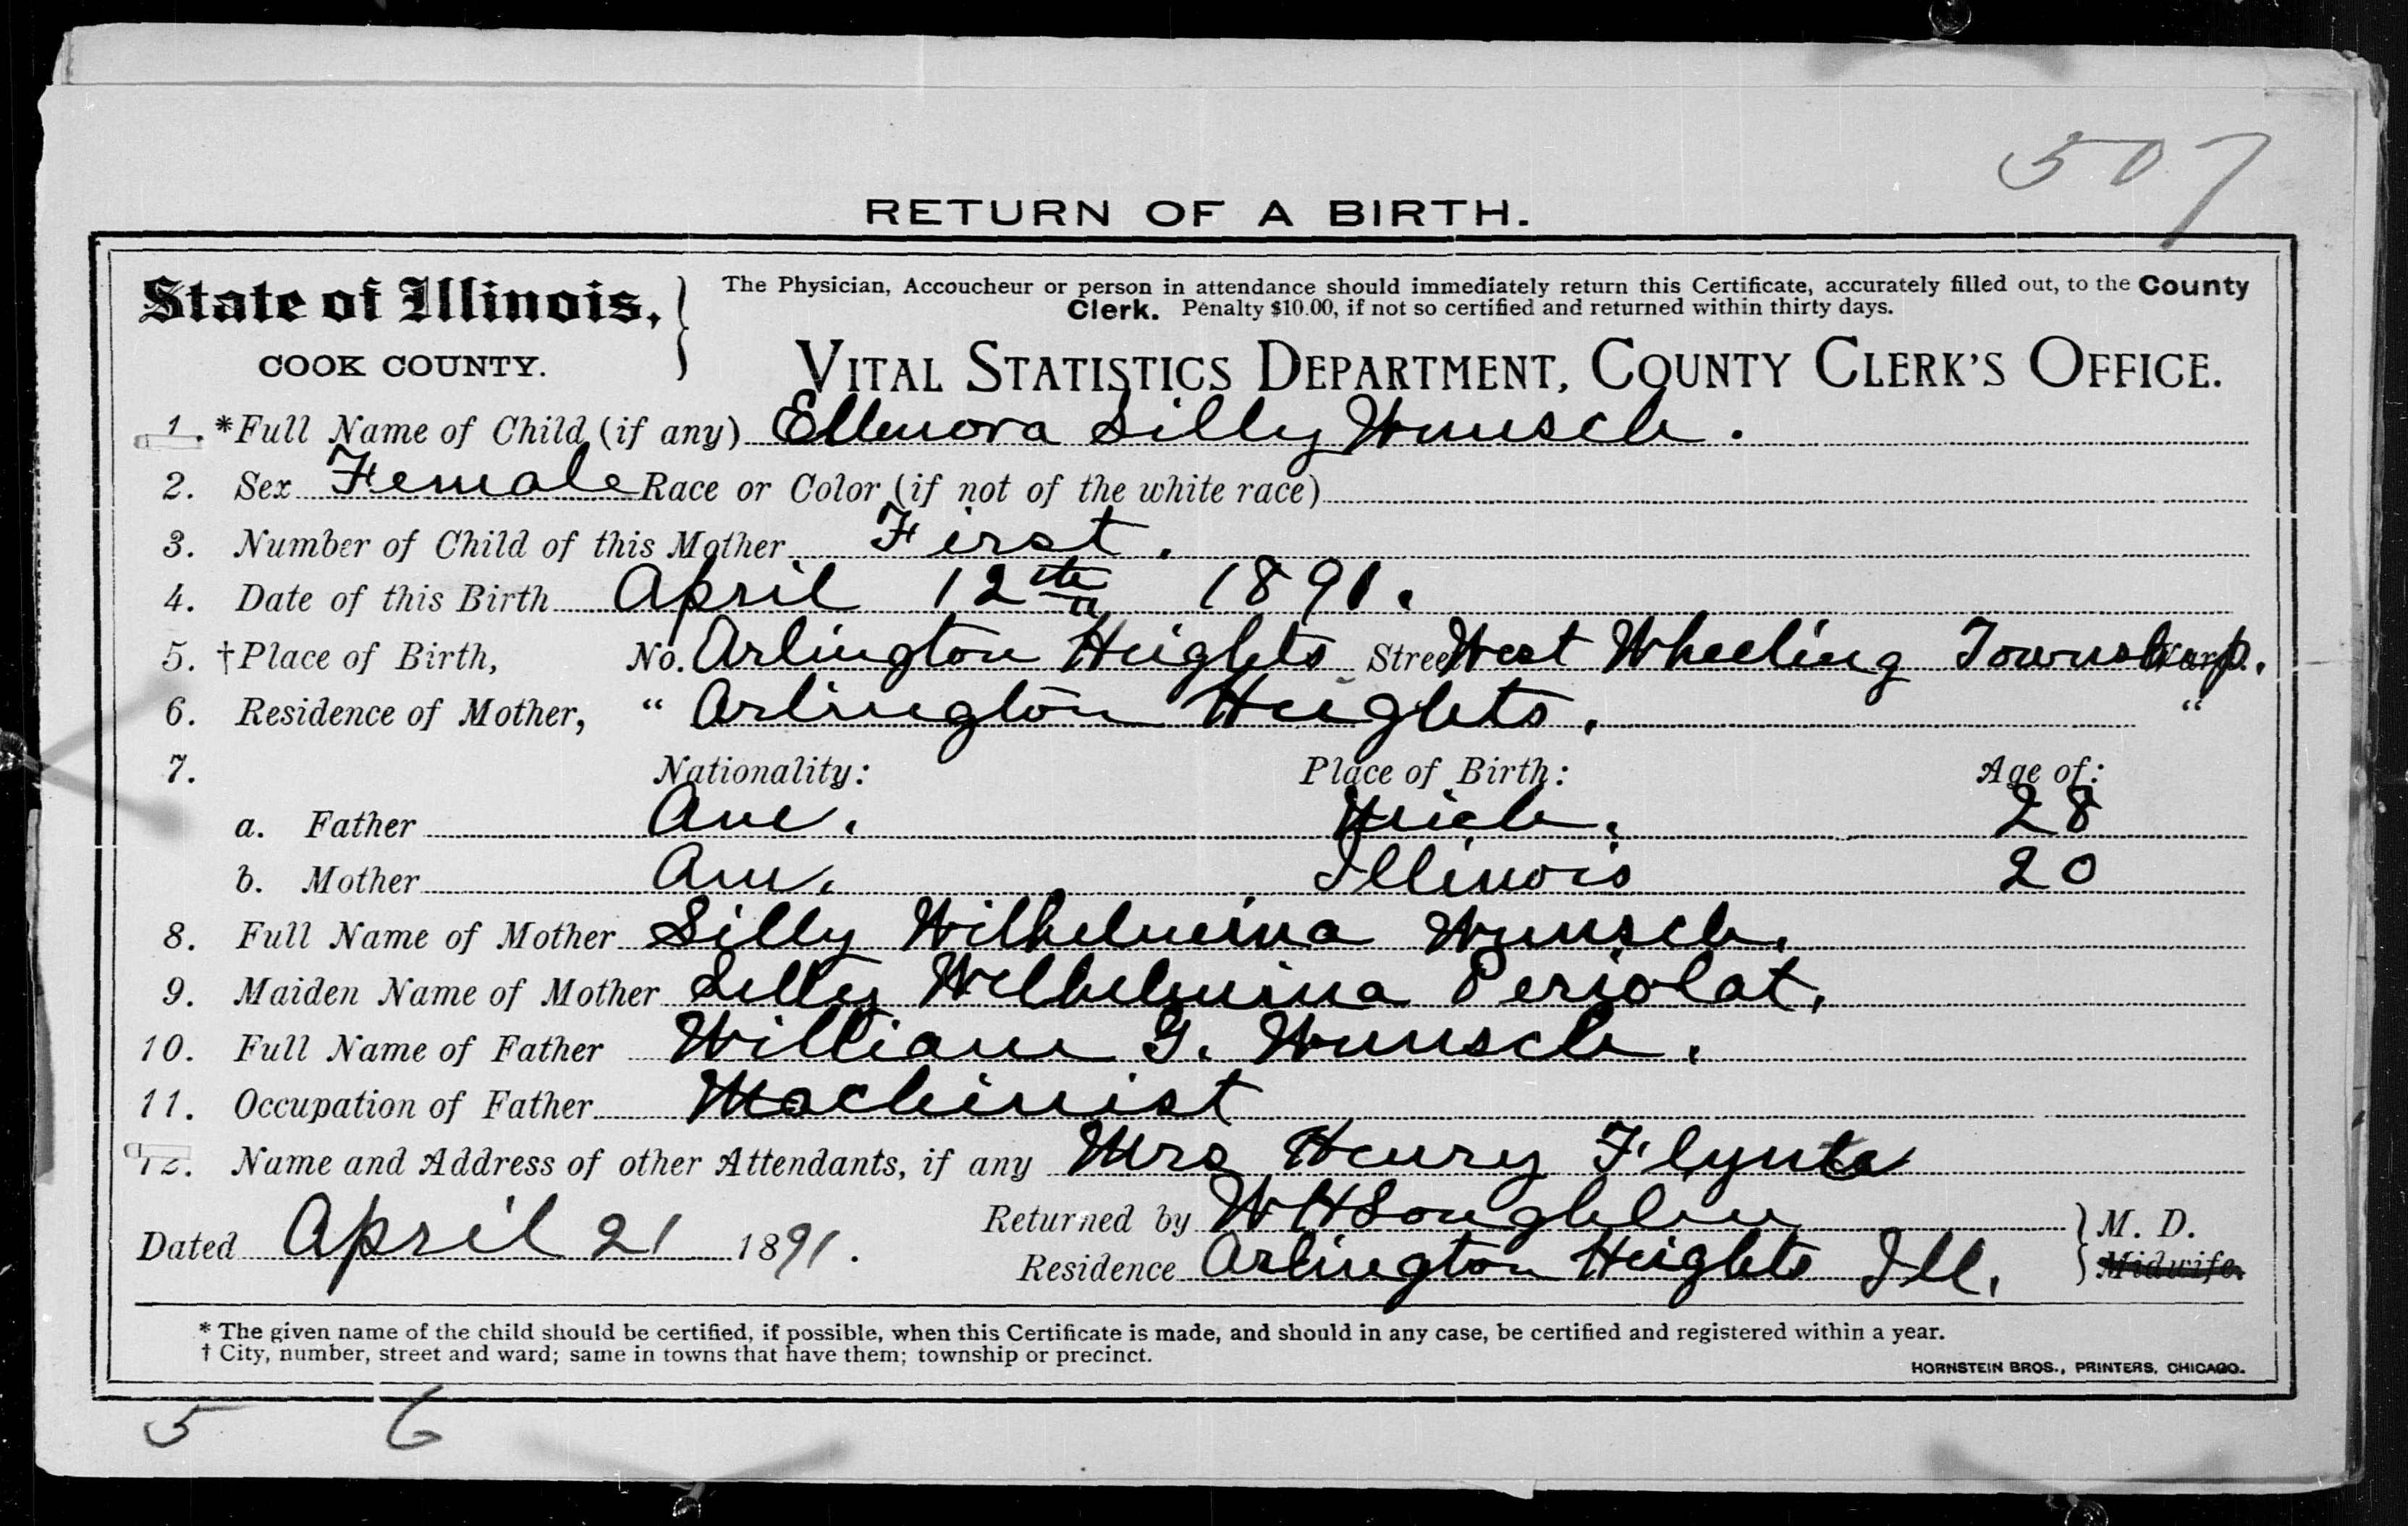 507
RETURN OF A BIRTH.
State of Illinois,
COOK COUNTY.
The Physician, Accoucheur or person in attendance should immediately return this Certificate, accurately filled out, to the County
Clerk. Penalty $10.00, if not so certified and returned within thirty days.
VITAL STATISTICS DEPARTMENT, COUNTY CLERK'S OFFICE.
1. *Full Name of Child (if any) Ellenora Lilly Wunsch.
2. Sex Female Race or Color (if not of the white race)
3. Number of Child of this Mother First.
4. Date of this Birth April 12th 1891.
5. †Place of Birth, No. Arlington Heights Street West Wheeling Township. Ward
6. Residence of Mother, " Arlington Heights. "
7. Nationality: Place of Birth: Age of:
a. Father Am. Mich. 28
b. Mother Am. Illinois 20
8. Full Name of Mother Lilly Wilhelmina Wunsch.
9. Maiden Name of Mother Lilly Wilhelmina Periolat.
10. Full Name of Father William G. Wunsch.
11. Occupation of Father Machinist
12. Name and Address of other Attendants, if any Mrs Henry
Dated April 21 1891.
Returned by W H M. D.
Residence Arlington Heights Ill. Midwife.
* The given name of the child should be certified, if possible, when this Certificate is made, and should in any case, be certified and registered within a year.
† City, number, street and ward; same in towns that have them; township or precinct.
HORNSTEIN BROS., PRINTERS, CHICAGO.
5 6